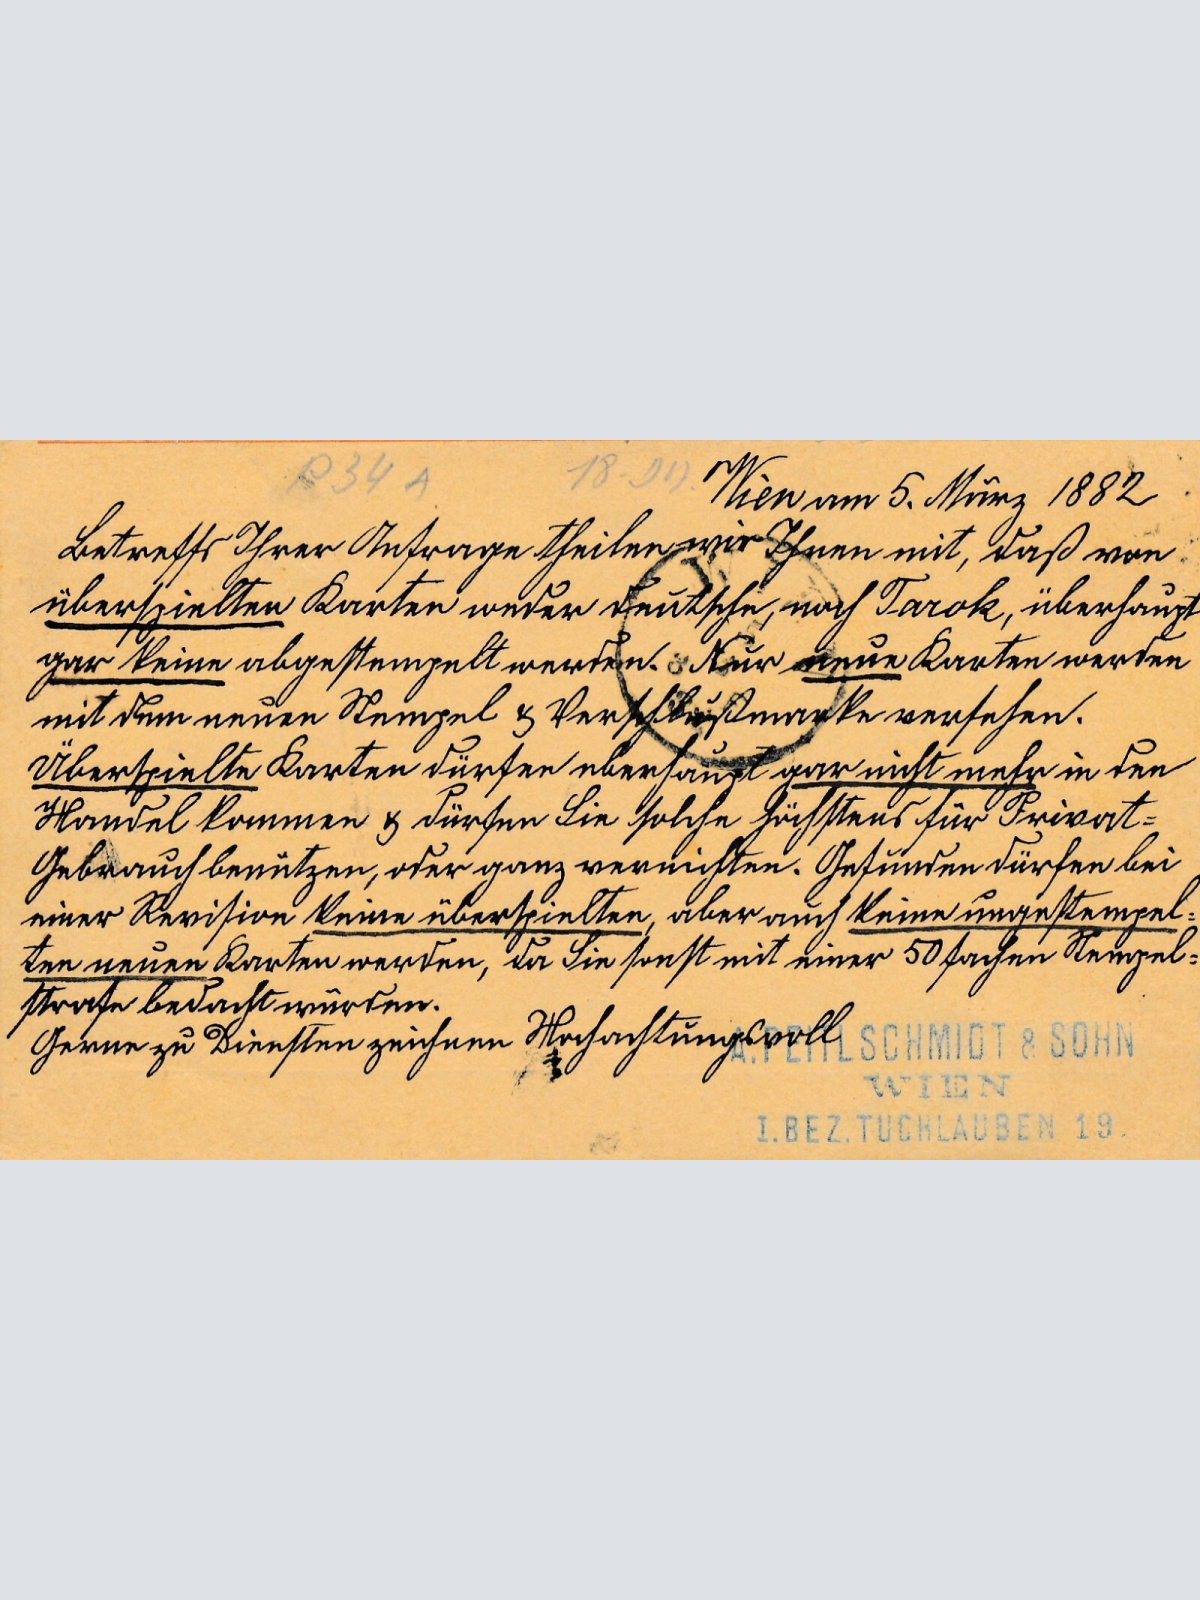 P 34 A
Wien am 5. März 1882
Betreffs Ihrer Anfrage theilen wir Ihnen mit, daß von
überspielten Karten weder deutsche, noch Tarok, überhaupt
gar keine abgestempelt werden. Nur neue Karten werden
mit dem neuen Stempel & Verschlußmarke versehen.
Überspielte Karten dürfen überhaupt gar nicht mehr in den
Handel kommen & dürfen Sie solche höchstens für Privat=
Gebrauch benützen, oder ganz vernichten. Gefunden dürfen bei
einer Revision keine überspielten, aber auch keine ungestempel=
ten neuen Karten werden, da Sie sonst mit einer 50fachen Stempel=
strafe bedacht würden.
Gerne zu Diensten zeichnen Hochachtungsvoll
SCHMIDT & SOHN
WIEN
I.BEZ.TUCHLAUBEN 19.